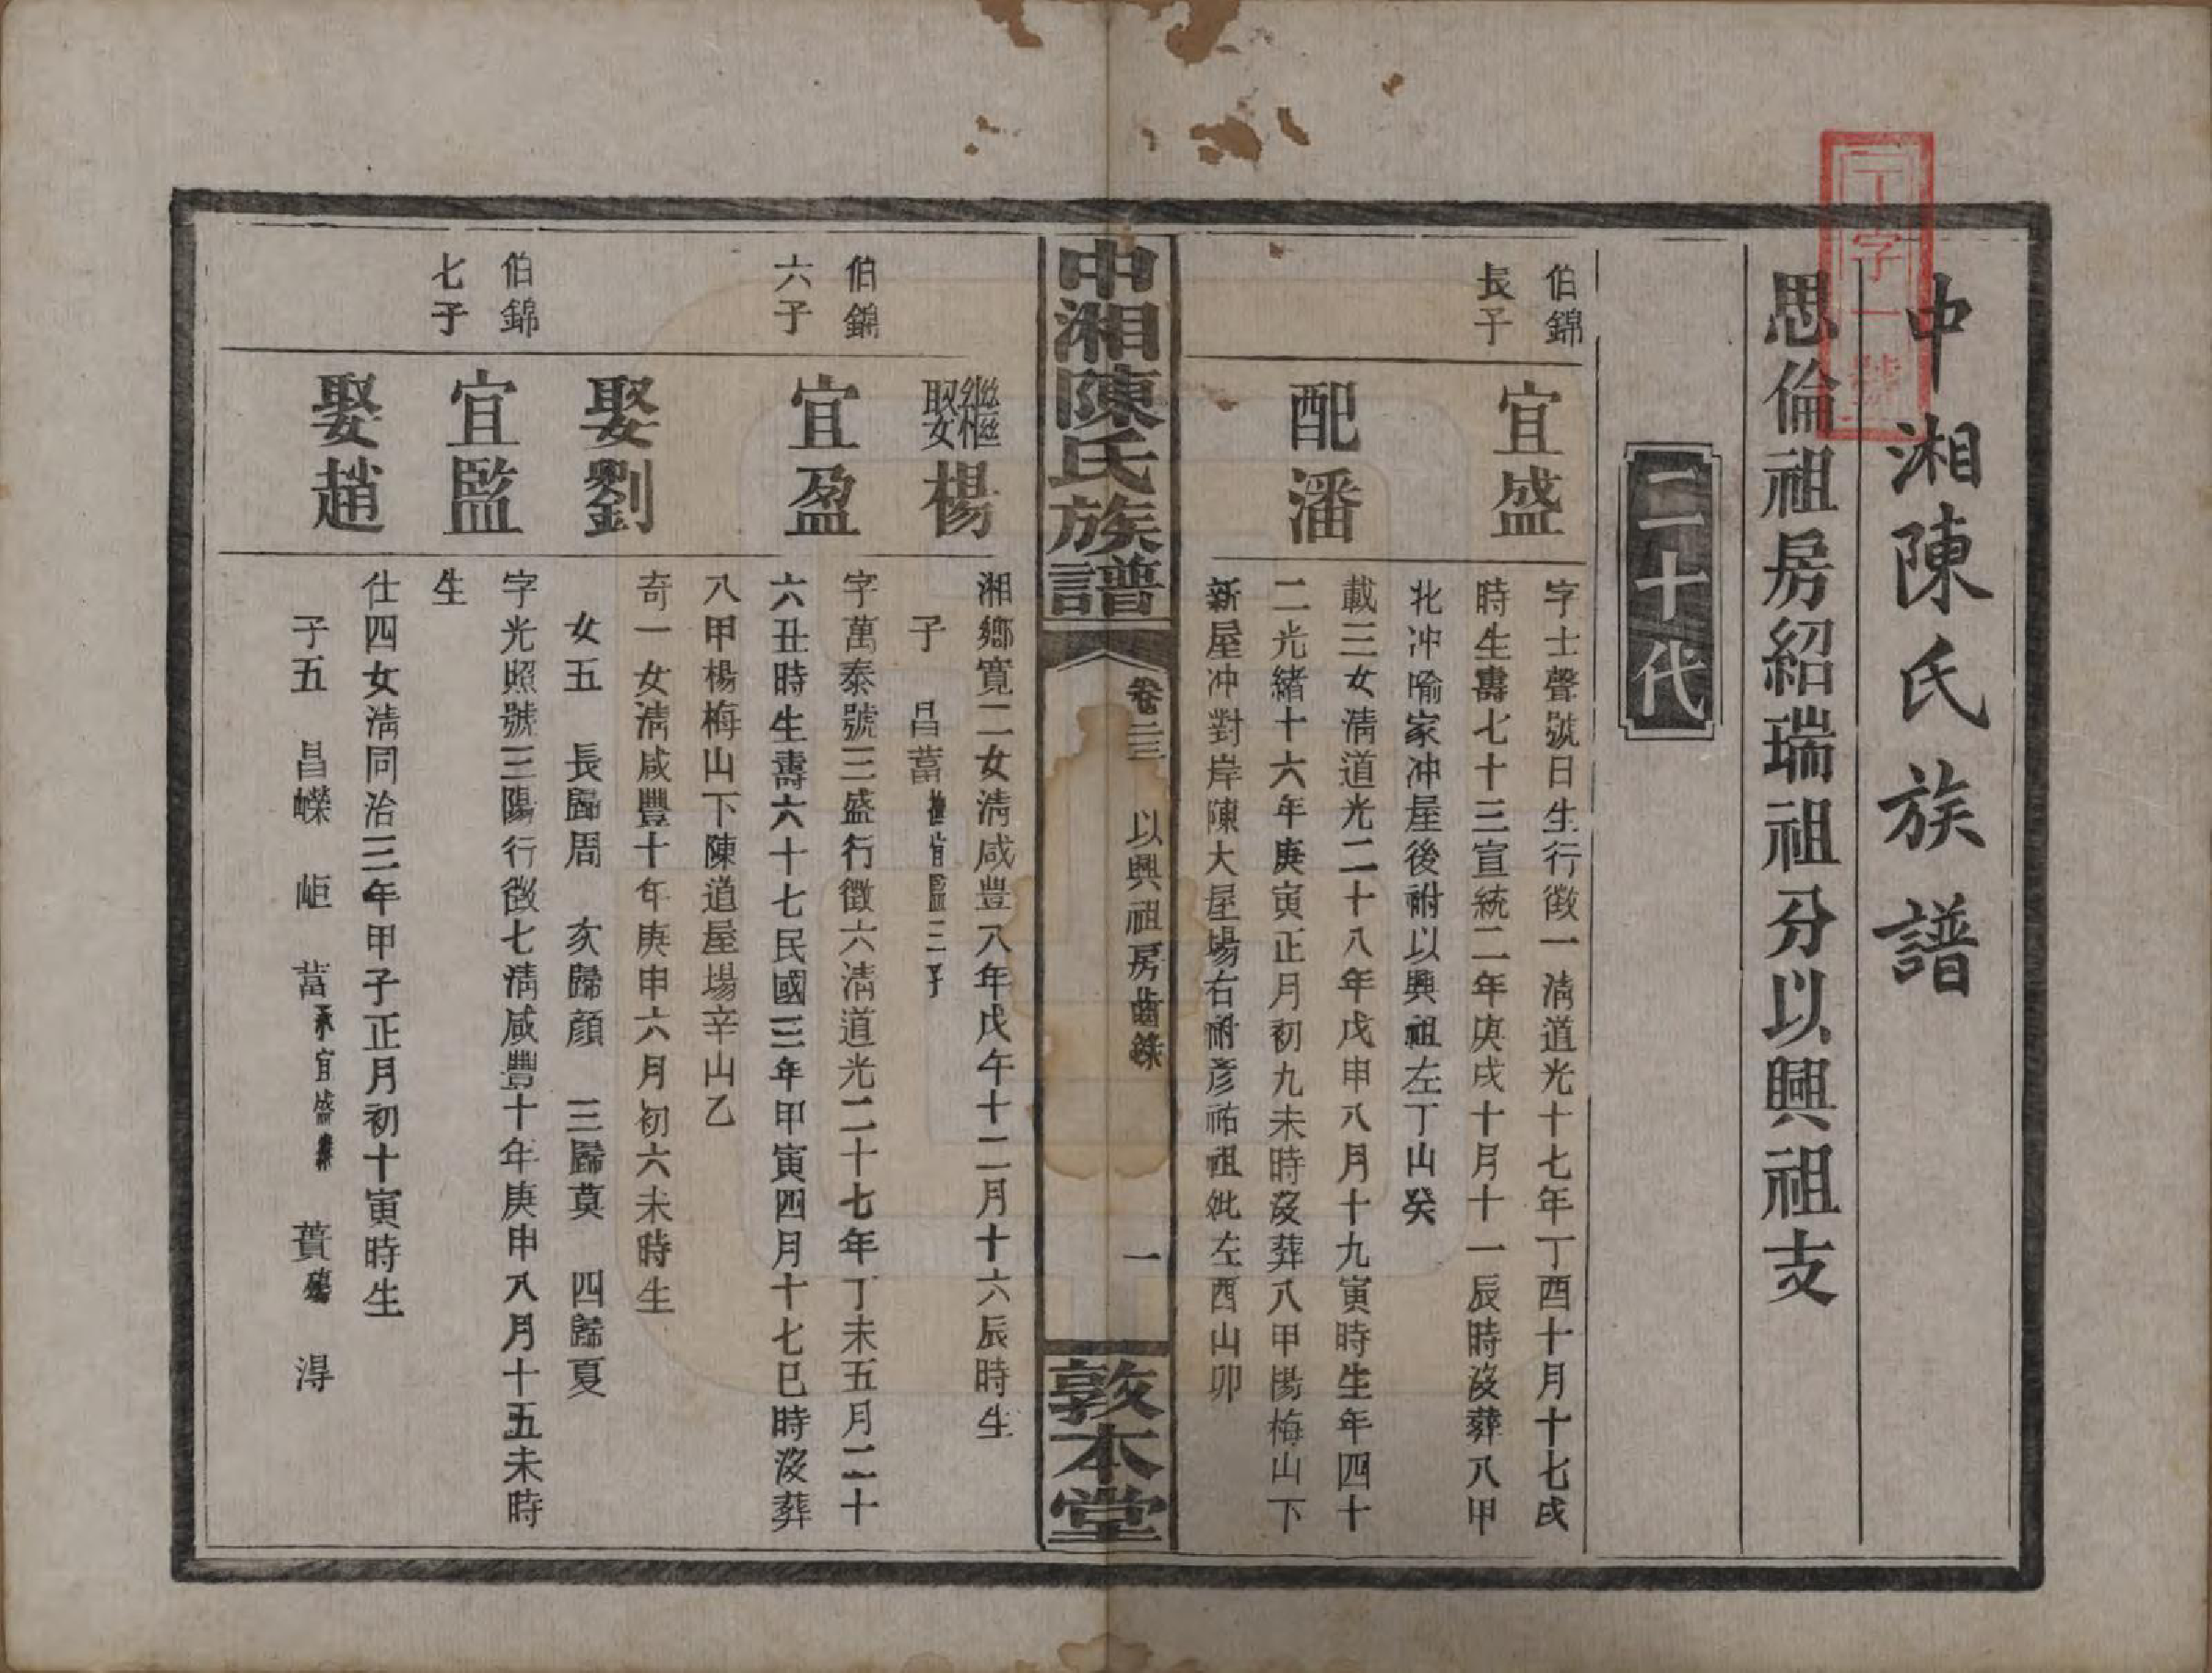 丁字一號
中湘陳氏族譜
思倫祖房紹瑞祖分以興祖支
二十代
伯錦
長子
宜盛
字士聲號日生行徵一淸道光十七年丁酉十月十七戌
時生壽七十三宣統二年庚戌十月十一辰時沒葬八甲
北冲喻家冲屋後祔以興祖左丁山癸
配潘
載三女淸道光二十八年戊申八月十九寅時生年四十
二光緒十六年庚寅正月初九未時沒葬八甲楊梅山下
新屋冲對岸陳大屋塲右祔彥祐祖妣左酉山卯
中湘陳氏族譜
卷二三
以興祖房齒錄
一
敦本堂
繼娶楊
湘鄉寬二女淸咸豐八年戊午十二月十六辰時生
子 昌蒕撫宜監三子
伯錦
六子
宜盈
字萬泰號三盛行徵六淸道光二十七年丁未五月二十
六丑時生壽六十七民國三年甲寅四月十七巳時沒葬
八甲楊梅山下陳道屋塲辛山乙
娶劉
奇一女淸咸豐十年庚申六月初六未時生
女五 長歸周 次歸顏 三歸莫 四歸夏
伯錦
七子
宜監
字光照號三陽行徵七淸咸豐十年庚申八月十五未時
生
娶趙
仕四女淸同治三年甲子正月初十寅時生
子五 昌嶸 岠 蒕承宜盛 蕢殤 淂